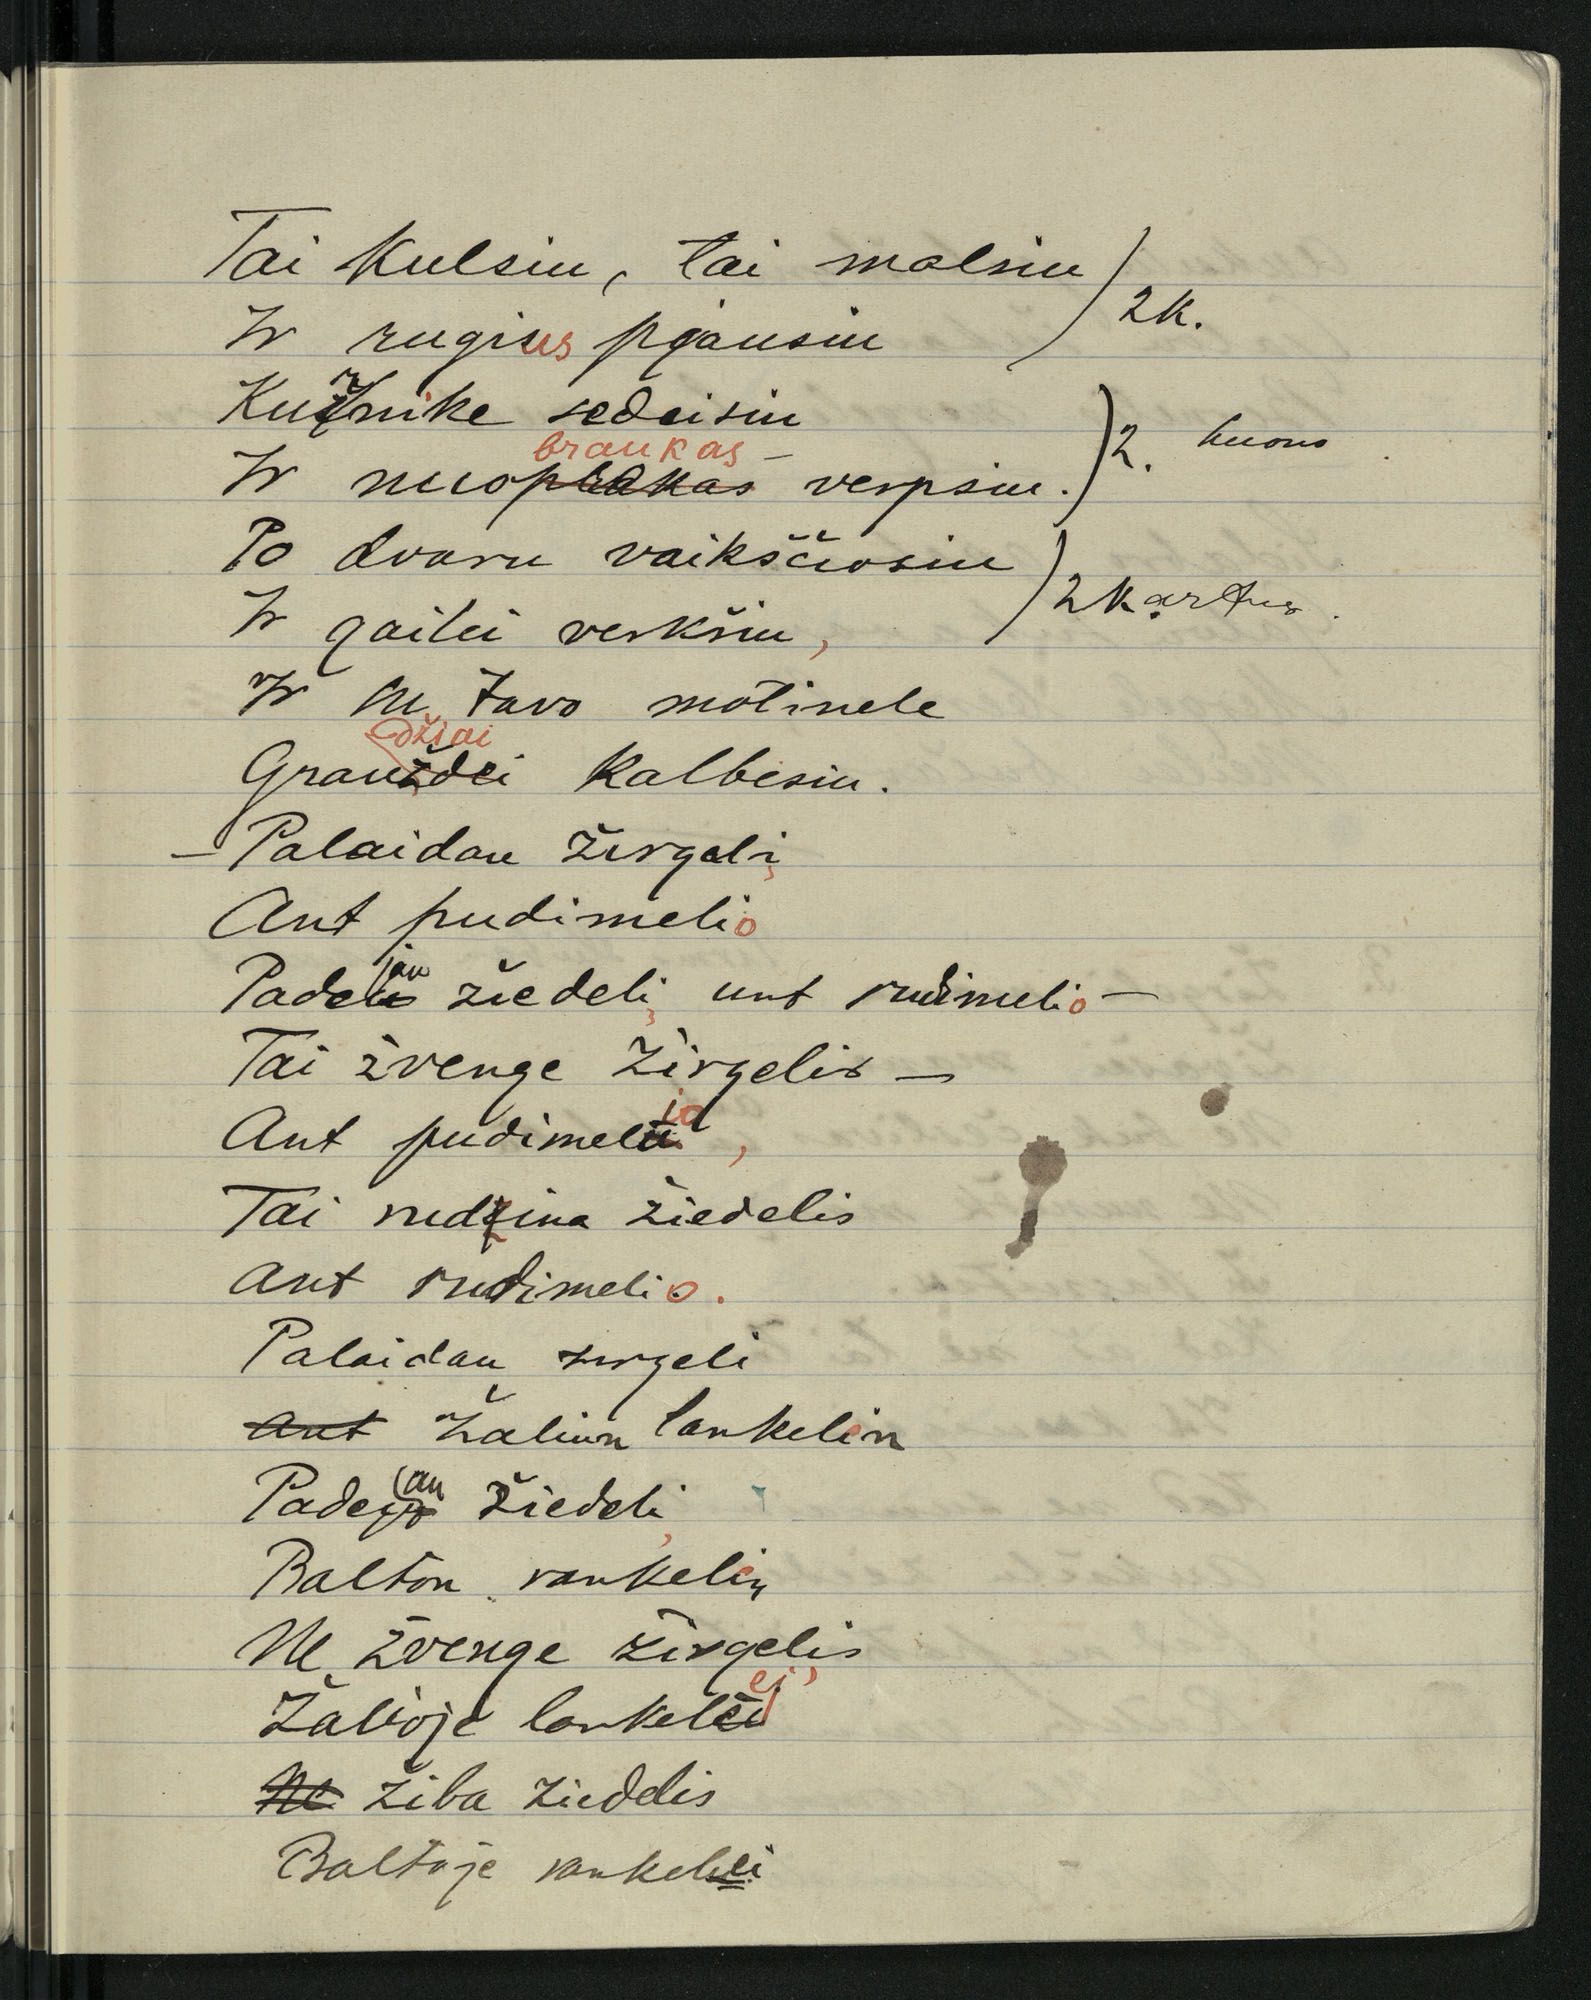 Tai kulsiu, tai malsiu ) 2k.
Ir rugius pjausiu
Kužnike sedeisiu ) 2. kuons
Ir nuobraukas verpsiu.
Po dvaru vaikščiosiu ) 2 kartus.
Ir gailei verkšiu,
Ir ne tavo motinele
Graudžiai kalbesiu.
– Palaidau žirgeli,
Ant pudimelio
Padejau žiedeli, unt rudimelio –
Tai žvenge žirgelis –
Ant pudimelio,
Tai rudzina žiedelis
Ant rudimelio.
Palaidau zirgeli
Ant Žaliun lankelin
Padejau žiedeli,
Balton rankelin
Ne žvenge žirgelis
Žalioje lankelej,
Ne žiba ziedelis
Baltoje rankelei